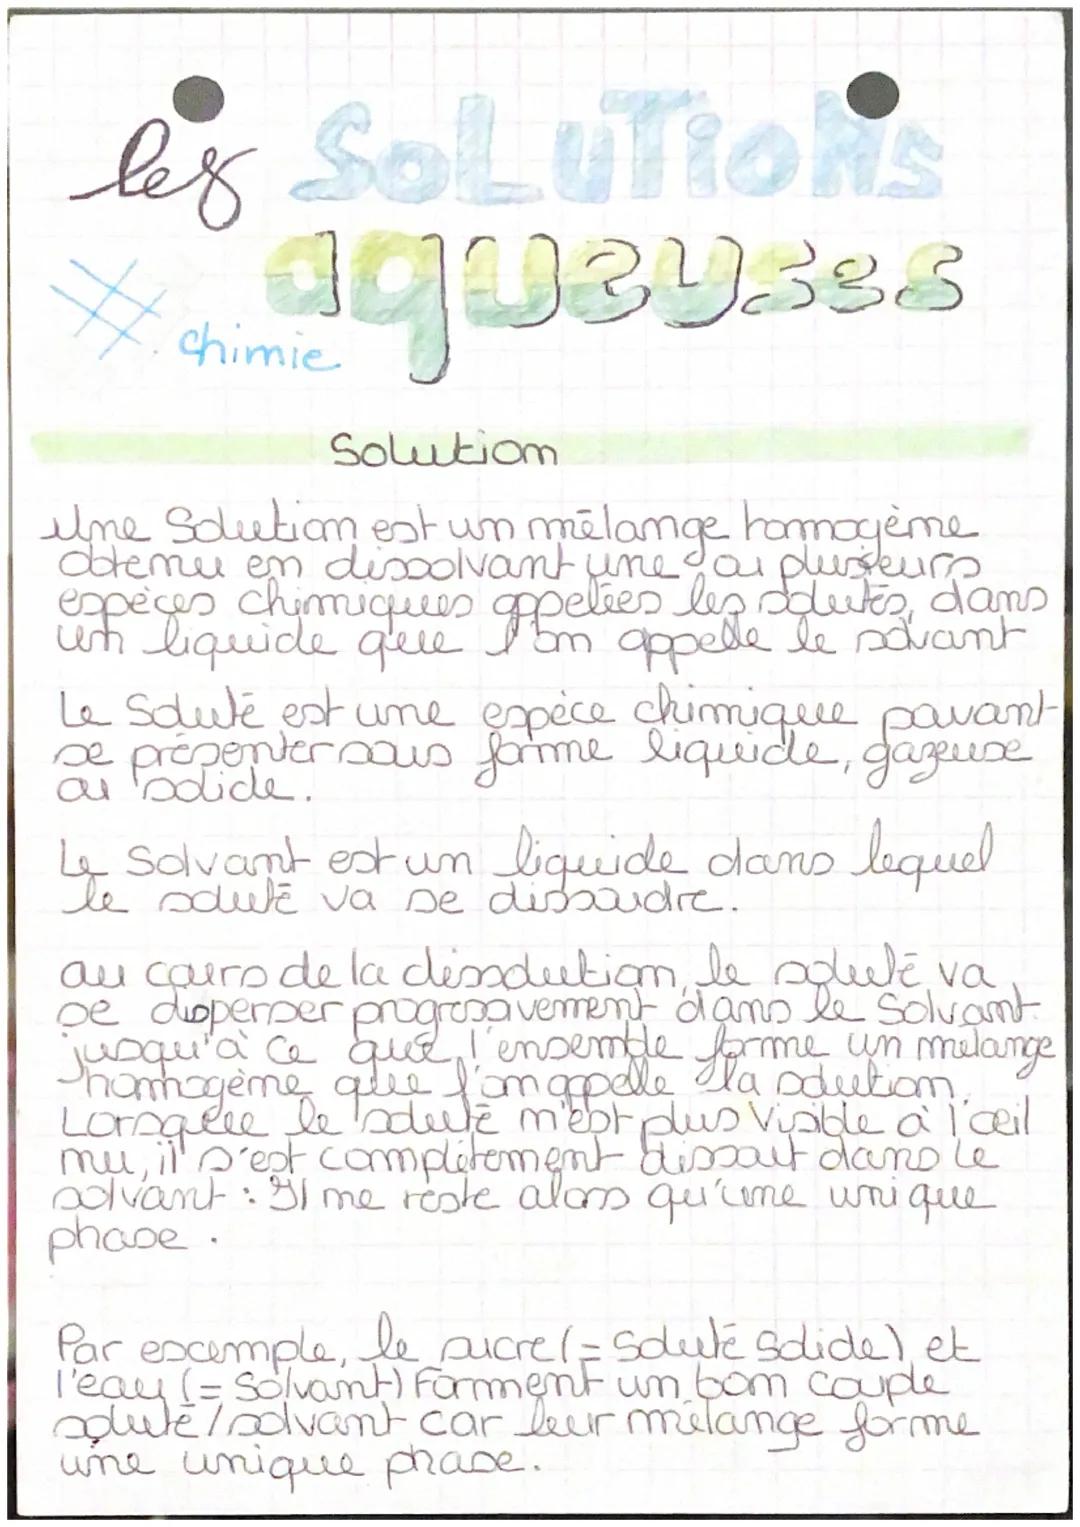 les SOLUTIONS
aqueuses
# chimie
Solution
Une Solution est un mélange homogène
obtenu en dissolvant une ou plusieurs
espèces chimiques appelées les solutés, dans
un liquide que l'on appelle le solvant
Le Soluté est une espèce chimique pouvant
se présenter sous forme liquide, gazeuse
ou solide.
Le Solvant est un liquide dans lequel
le soluté va se dissoudre.
au cours de la dissolution, le soluté va
se disperser progressivement dans le Solvant
jusqu'à ce que l'ensemble forme un mélange
homogène que l'on appelle la solution.
Lorsque le soluté n'est plus visible à l'œil
nu, il s'est complètement dissout dans le
solvant : Il ne reste alors qu'une unique
phase.
Par excemple, le sucre (= Soluté Solide) et
l'eau (= Solvant) Forment un bon couple
soluté / solvant car leur mélange forme
une unique phase.